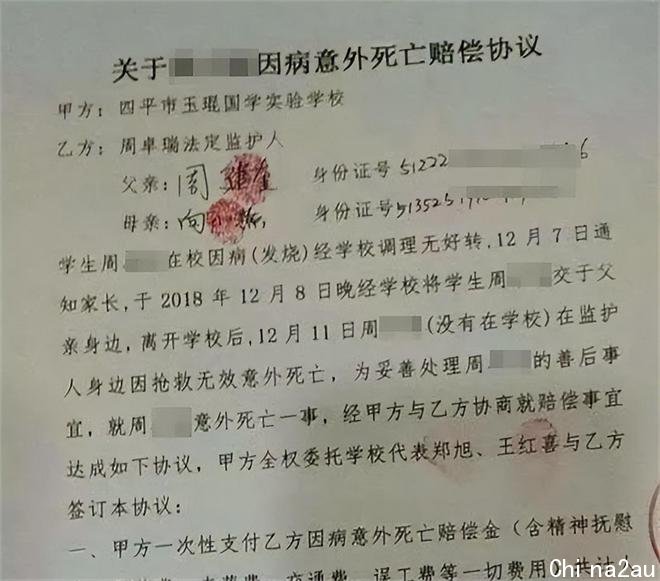 关于 因病意外死亡赔偿协议
甲方：四平市玉琨国学实验学校
乙方：周卓瑞法定监护人
父亲：周 身份证号 51222 6
母亲：向 身份证号 51352519
学生周 在校因病(发烧)经学校调理无好转,12月7日通
知家长,于2018年12月8日晚经学校将学生周 交于父
亲身边,离开学校后,12月11日周 (没有在学校)在监护
人身边因抢救无效意外死亡,为妥善处理周 的善后事
宜,就周 意外死亡一事,经甲方与乙方协商就赔偿事宜
达成如下协议,甲方全权委托学校代表郑旭、王红喜与乙方
签订本协议:
一、甲方一次性支付乙方因病意外死亡赔偿金(含精神抚慰
交通费、误工费等一切费用
Chi na2au